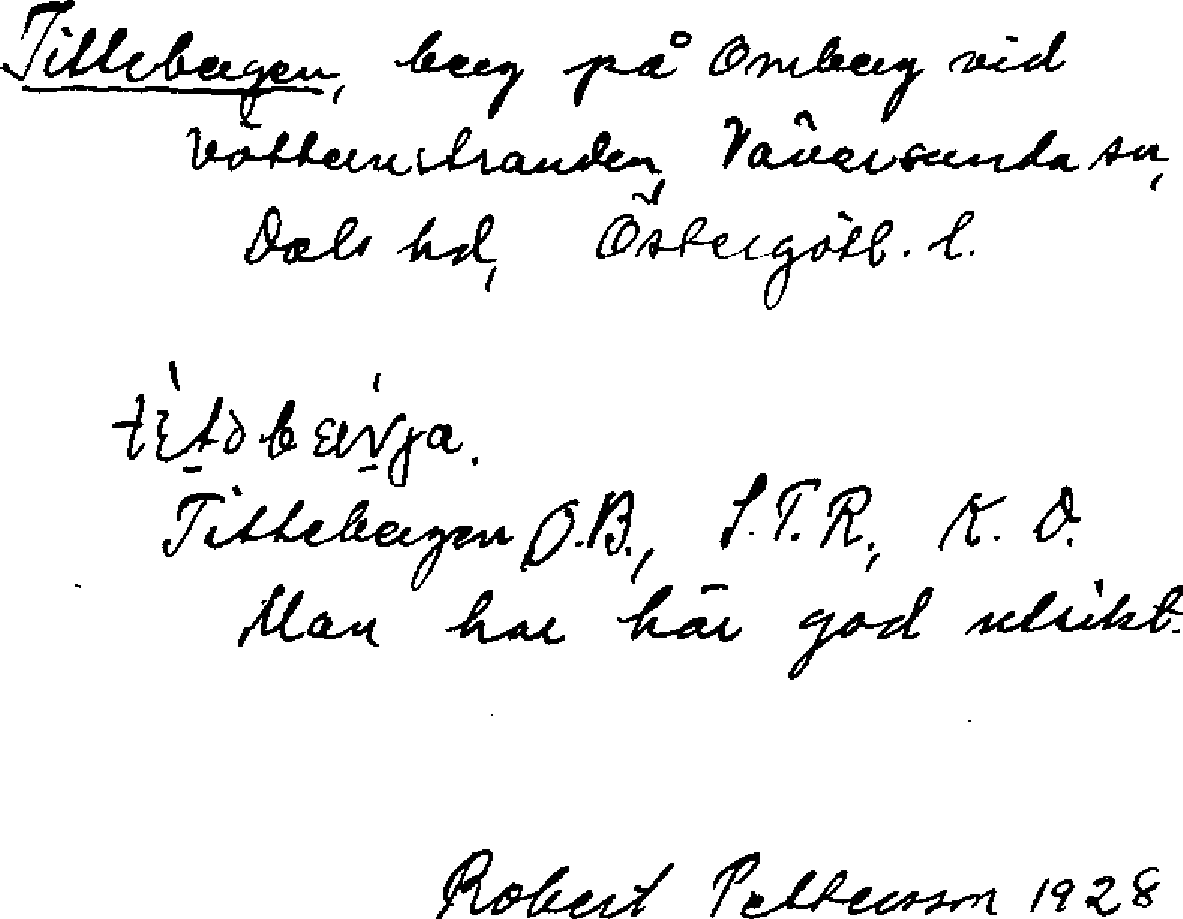 Tittebergen, berg på Omberg vid
Vätternstranden, Väversunda sn,
Dals hd, Östergötl. l.
Tittebergen D.B., S.T.R., K. O.
Man har här god utsikt.
Robert Pettersson 1928